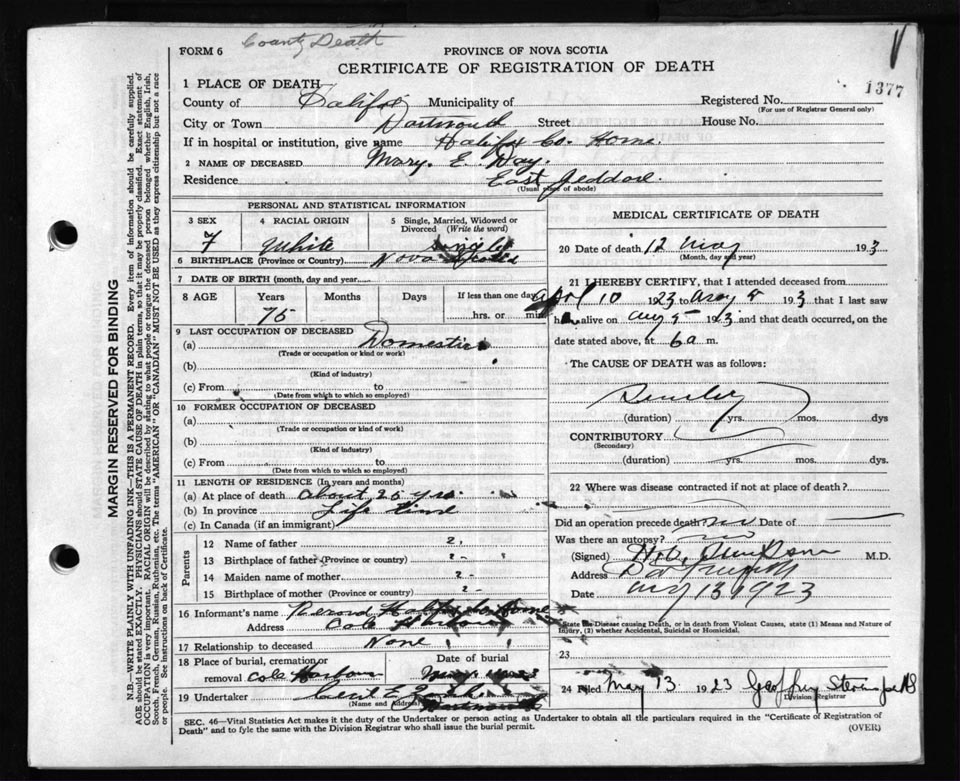 County Death
FORM 6
PROVINCE OF NOVA SCOTIA
CERTIFICATE OF REGISTRATION OF DEATH
1377
1 PLACE OF DEATH
County of Halifax Municipality of Registered No.
(For use of Registrar General only)
City or Town Dartmouth Street House No.
If in hospital or institution, give name Halifax Co. Home.
2 NAME OF DECEASED Mary. E. Day.
Residence East Jeddore.
(Usual place of abode)
PERSONAL AND STATISTICAL INFORMATION
3 SEX 4 RACIAL ORIGIN 5 Single, Married, Widowed or Divorced (Write the word)
F White Single
6 BIRTHPLACE (Province or Country) Nova Scotia
7 DATE OF BIRTH (month, day and year)
8 AGE Years Months Days If less than one day
75 hrs. or min
9 LAST OCCUPATION OF DECEASED
(a) Domestic
(Trade or occupation or kind or work)
(b)
(Kind of industry)
(c) From to
(Date from which to which so employed)
10 FORMER OCCUPATION OF DECEASED
(a)
(Trade or occupation or kind of work)
(b)
(Kind of industry)
(c) From to
(Date from which to which so employed)
11 LENGTH OF RESIDENCE (In years and months)
(a) At place of death about 25 yrs.
(b) In province Life time
(c) In Canada (if an immigrant)
Parents
12 Name of father ?
13 Birthplace of father (Province or country) ?
14 Maiden name of mother ?
15 Birthplace of mother (Province or country) ?
16 Informant's name Record Halifax Co Home
Address Cole Harbour
17 Relationship to deceased None
18 Place of burial, cremation or removal Cole Harbour Date of burial May
19 Undertaker Cecil E.
(Name and Address) Dartmouth
MEDICAL CERTIFICATE OF DEATH
20 Date of death 12 May 193
(Month, day and year)
21 I HEREBY CERTIFY, that I attended deceased from
April 10 1923 to 193 that I last saw
h alive on 1923 and that death occurred, on the
date stated above, at 6 a m.
The CAUSE OF DEATH was as follows:
Senility
(duration) yrs. mos. dys
CONTRIBUTORY
(Secondary)
(duration) yrs. mos. dys
22 Where was disease contracted if not at place of death?
Did an operation precede death? no Date of
Was there an autopsy? no
(Signed) M.D.
Address Dartmouth
Date May 13 1923
State the Disease causing Death, or in death from Violent Causes, state (1) Means and Nature of
Injury, (2) whether Accidental, Suicidal or Homicidal.
23
24 Filed May 13 1923 Geoffrey Stevens
Division Registrar
SEC. 46—Vital Statistics Act makes it the duty of the Undertaker or person acting as Undertaker to obtain all the particulars required in the "Certificate of Registration of
Death" and to fyle the same with the Division Registrar who shall issue the burial permit.
(OVER)
MARGIN RESERVED FOR BINDING
N.B.—WRITE PLAINLY WITH UNFADING INK—THIS IS A PERMANENT RECORD. Every item of information should be carefully supplied.
AGE should be stated EXACTLY. PHYSICIANS should STATE CAUSE OF DEATH in plain terms, so that it may be properly classified. Exact statement of
OCCUPATION is very important. RACIAL ORIGIN will be described by stating to what people or tongue the deceased person belonged, whether English, Irish,
Scotch, French, German, Russian, Ruthenian, etc. The terms "AMERICAN" OR "CANADIAN" MUST NOT BE USED as they express citizenship but not a race
or people. See instructions on back of Certificate.